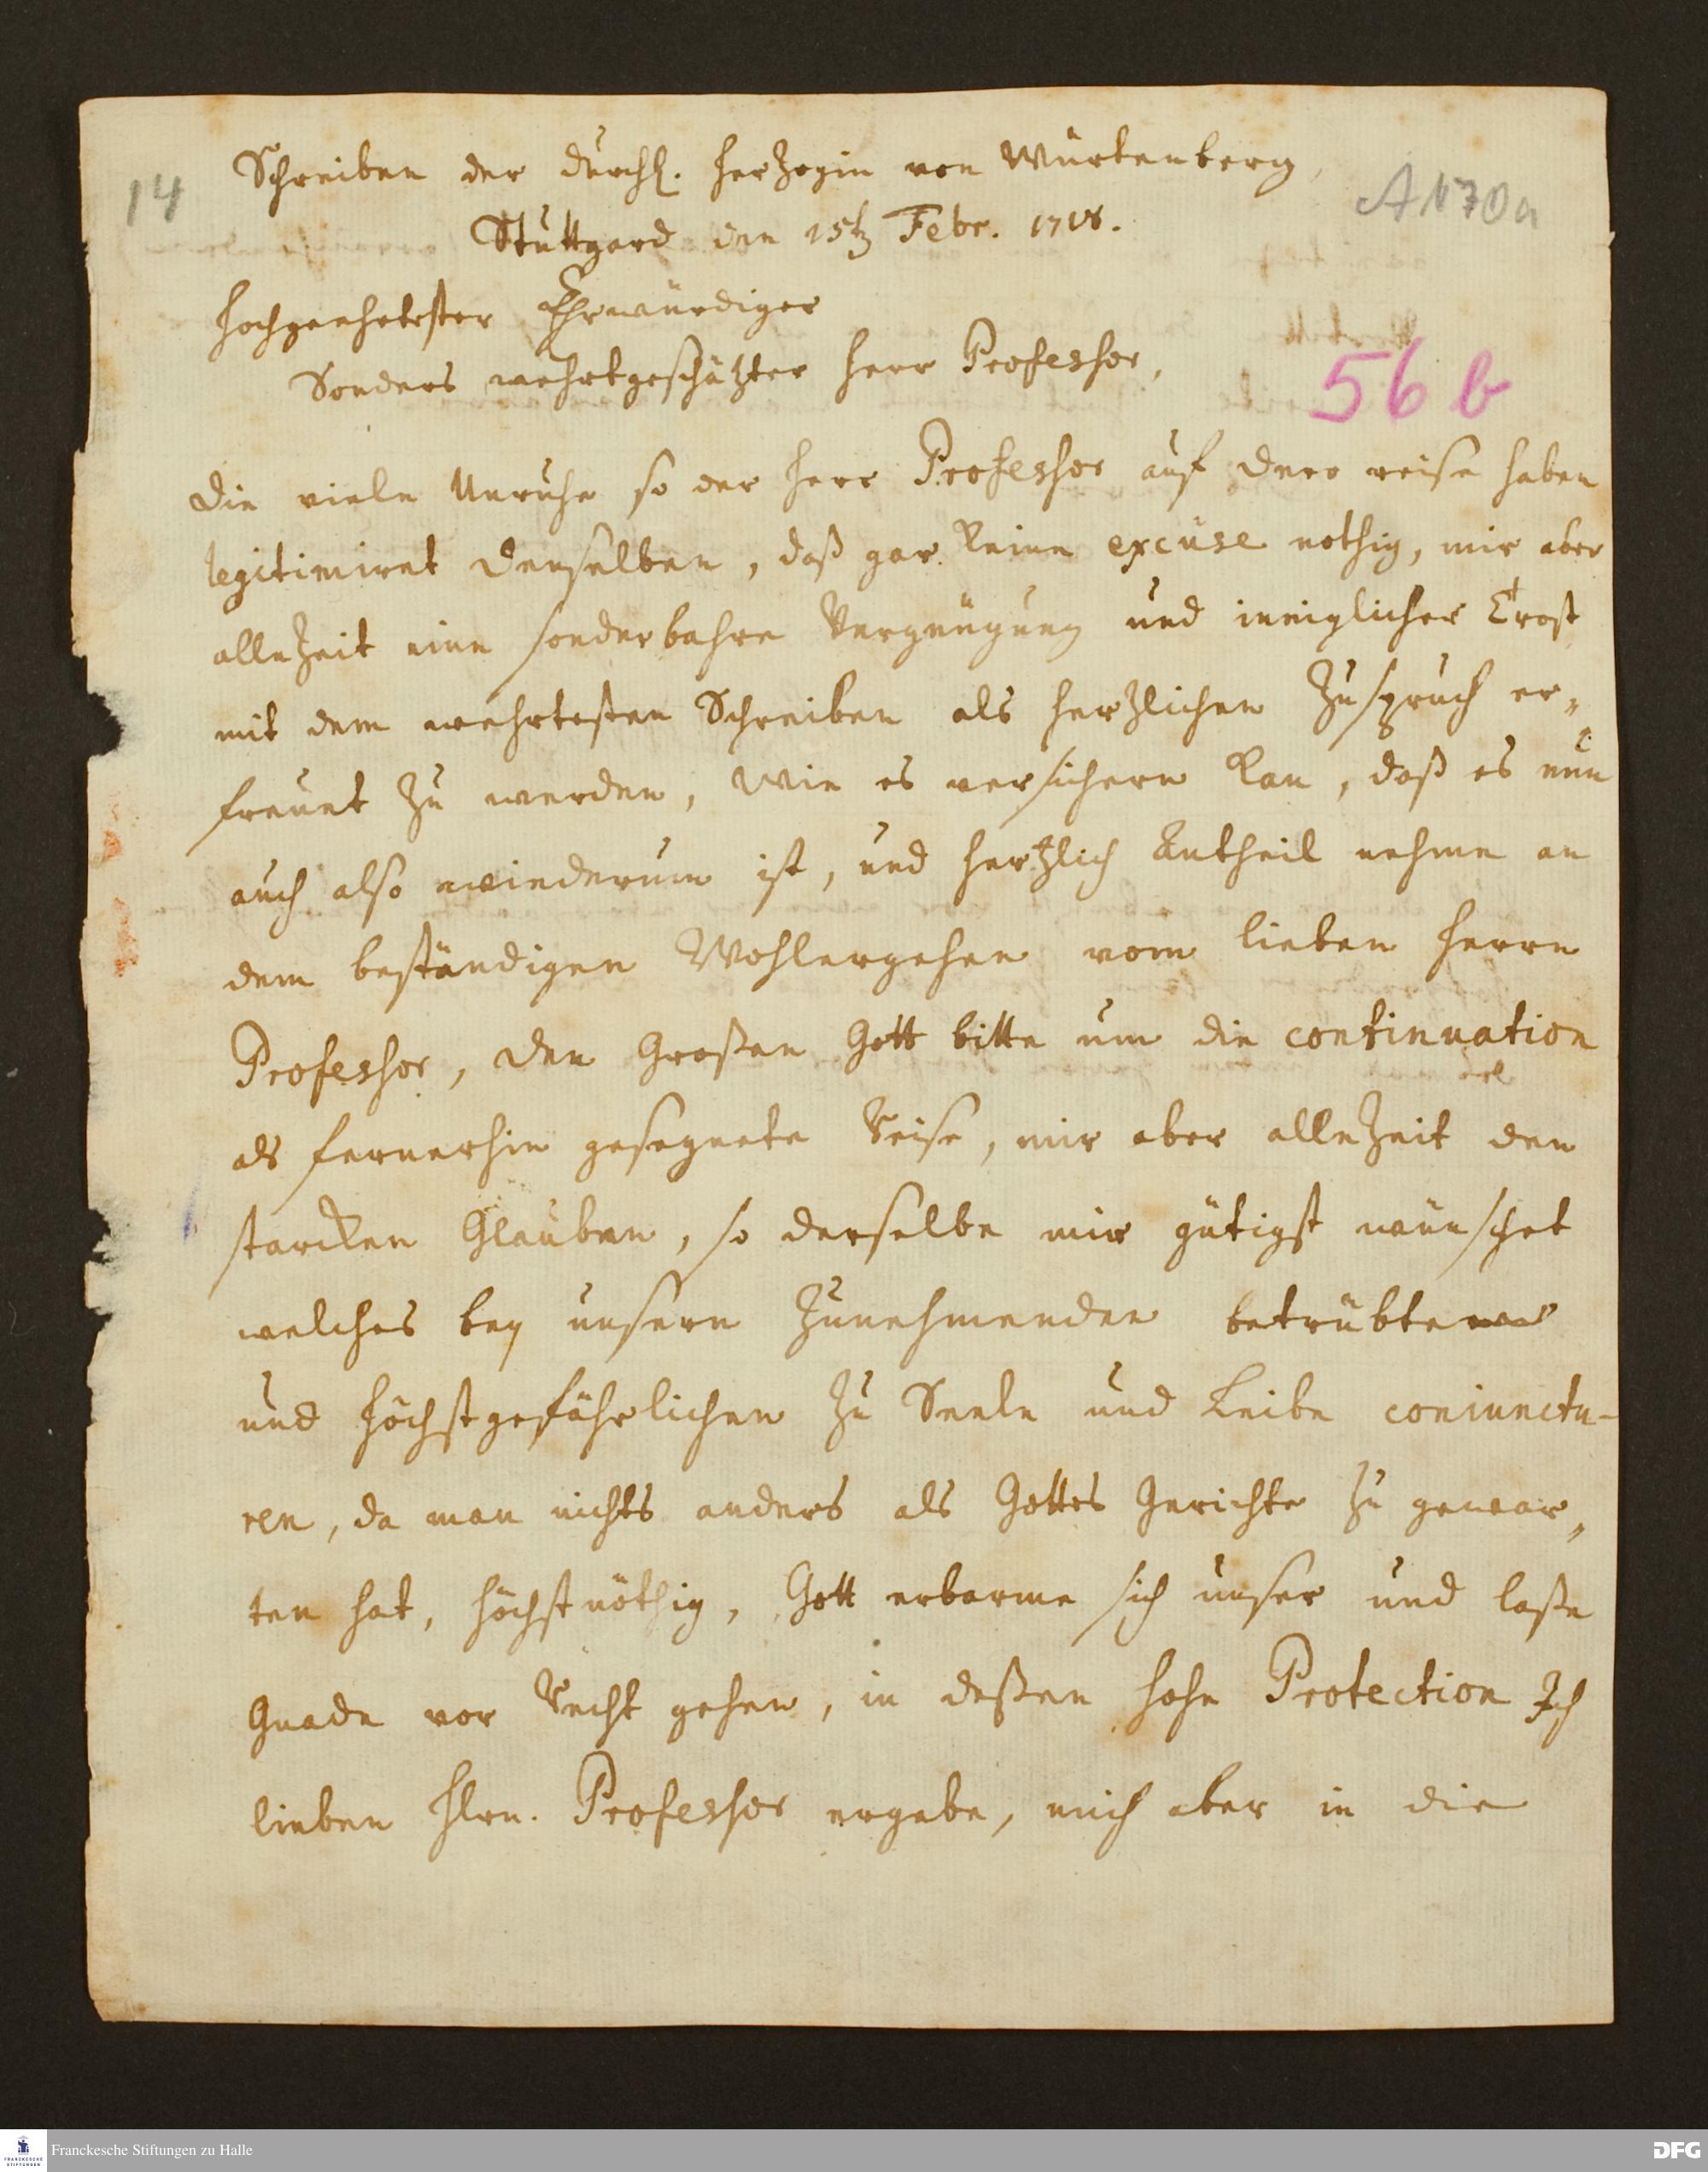 14
Schreiben der Durchl. Herzogin von Würtenberg,
A 170 a
Stuttgard den 15t Febr. 1718.
Hochgeehrtester Ehrwürdiger
Sonders wehrtgeschätzter Herr Professor,
56 b
Die viele Unruhe so der Herr Professor auf dero reise haben
legitimiret denselben, daß gar keine excuse nothig, mir aber
alle Zeit eine sonderbahre Vergnügung und inniglicher Trost
mit dem wehrtesten Schreiben als hertzlichen Zuspruch er„
freuet zu werden, wie es versichern kan, daß es nun
auch also wiederum ist, und hertzlich Antheil nehme an
dem beständigen Wohlergehen vom lieben Herrn
Professor, den Großen Gott bitte um die continuation
als fernerhin gesegnete Reise, mir aber alle Zeit den
starcken Glauben, so derselbe mir gütigst wünschet
welches bey unsern Zunehmenden betrübten
und höchstgefährlichen zu Seele und Leibe coniunctu-
ren, da man nichts anders als Gottes Gerichte zu gewar„
ten hat, höchst nöthig, Gott erbarme sich unser und laße
Gnade vor Recht gehen, in deßen hohe Protection Ich
lieben Hern. Professor ergebe, mich aber in die
Franckesche Stiftungen zu Halle
DFG